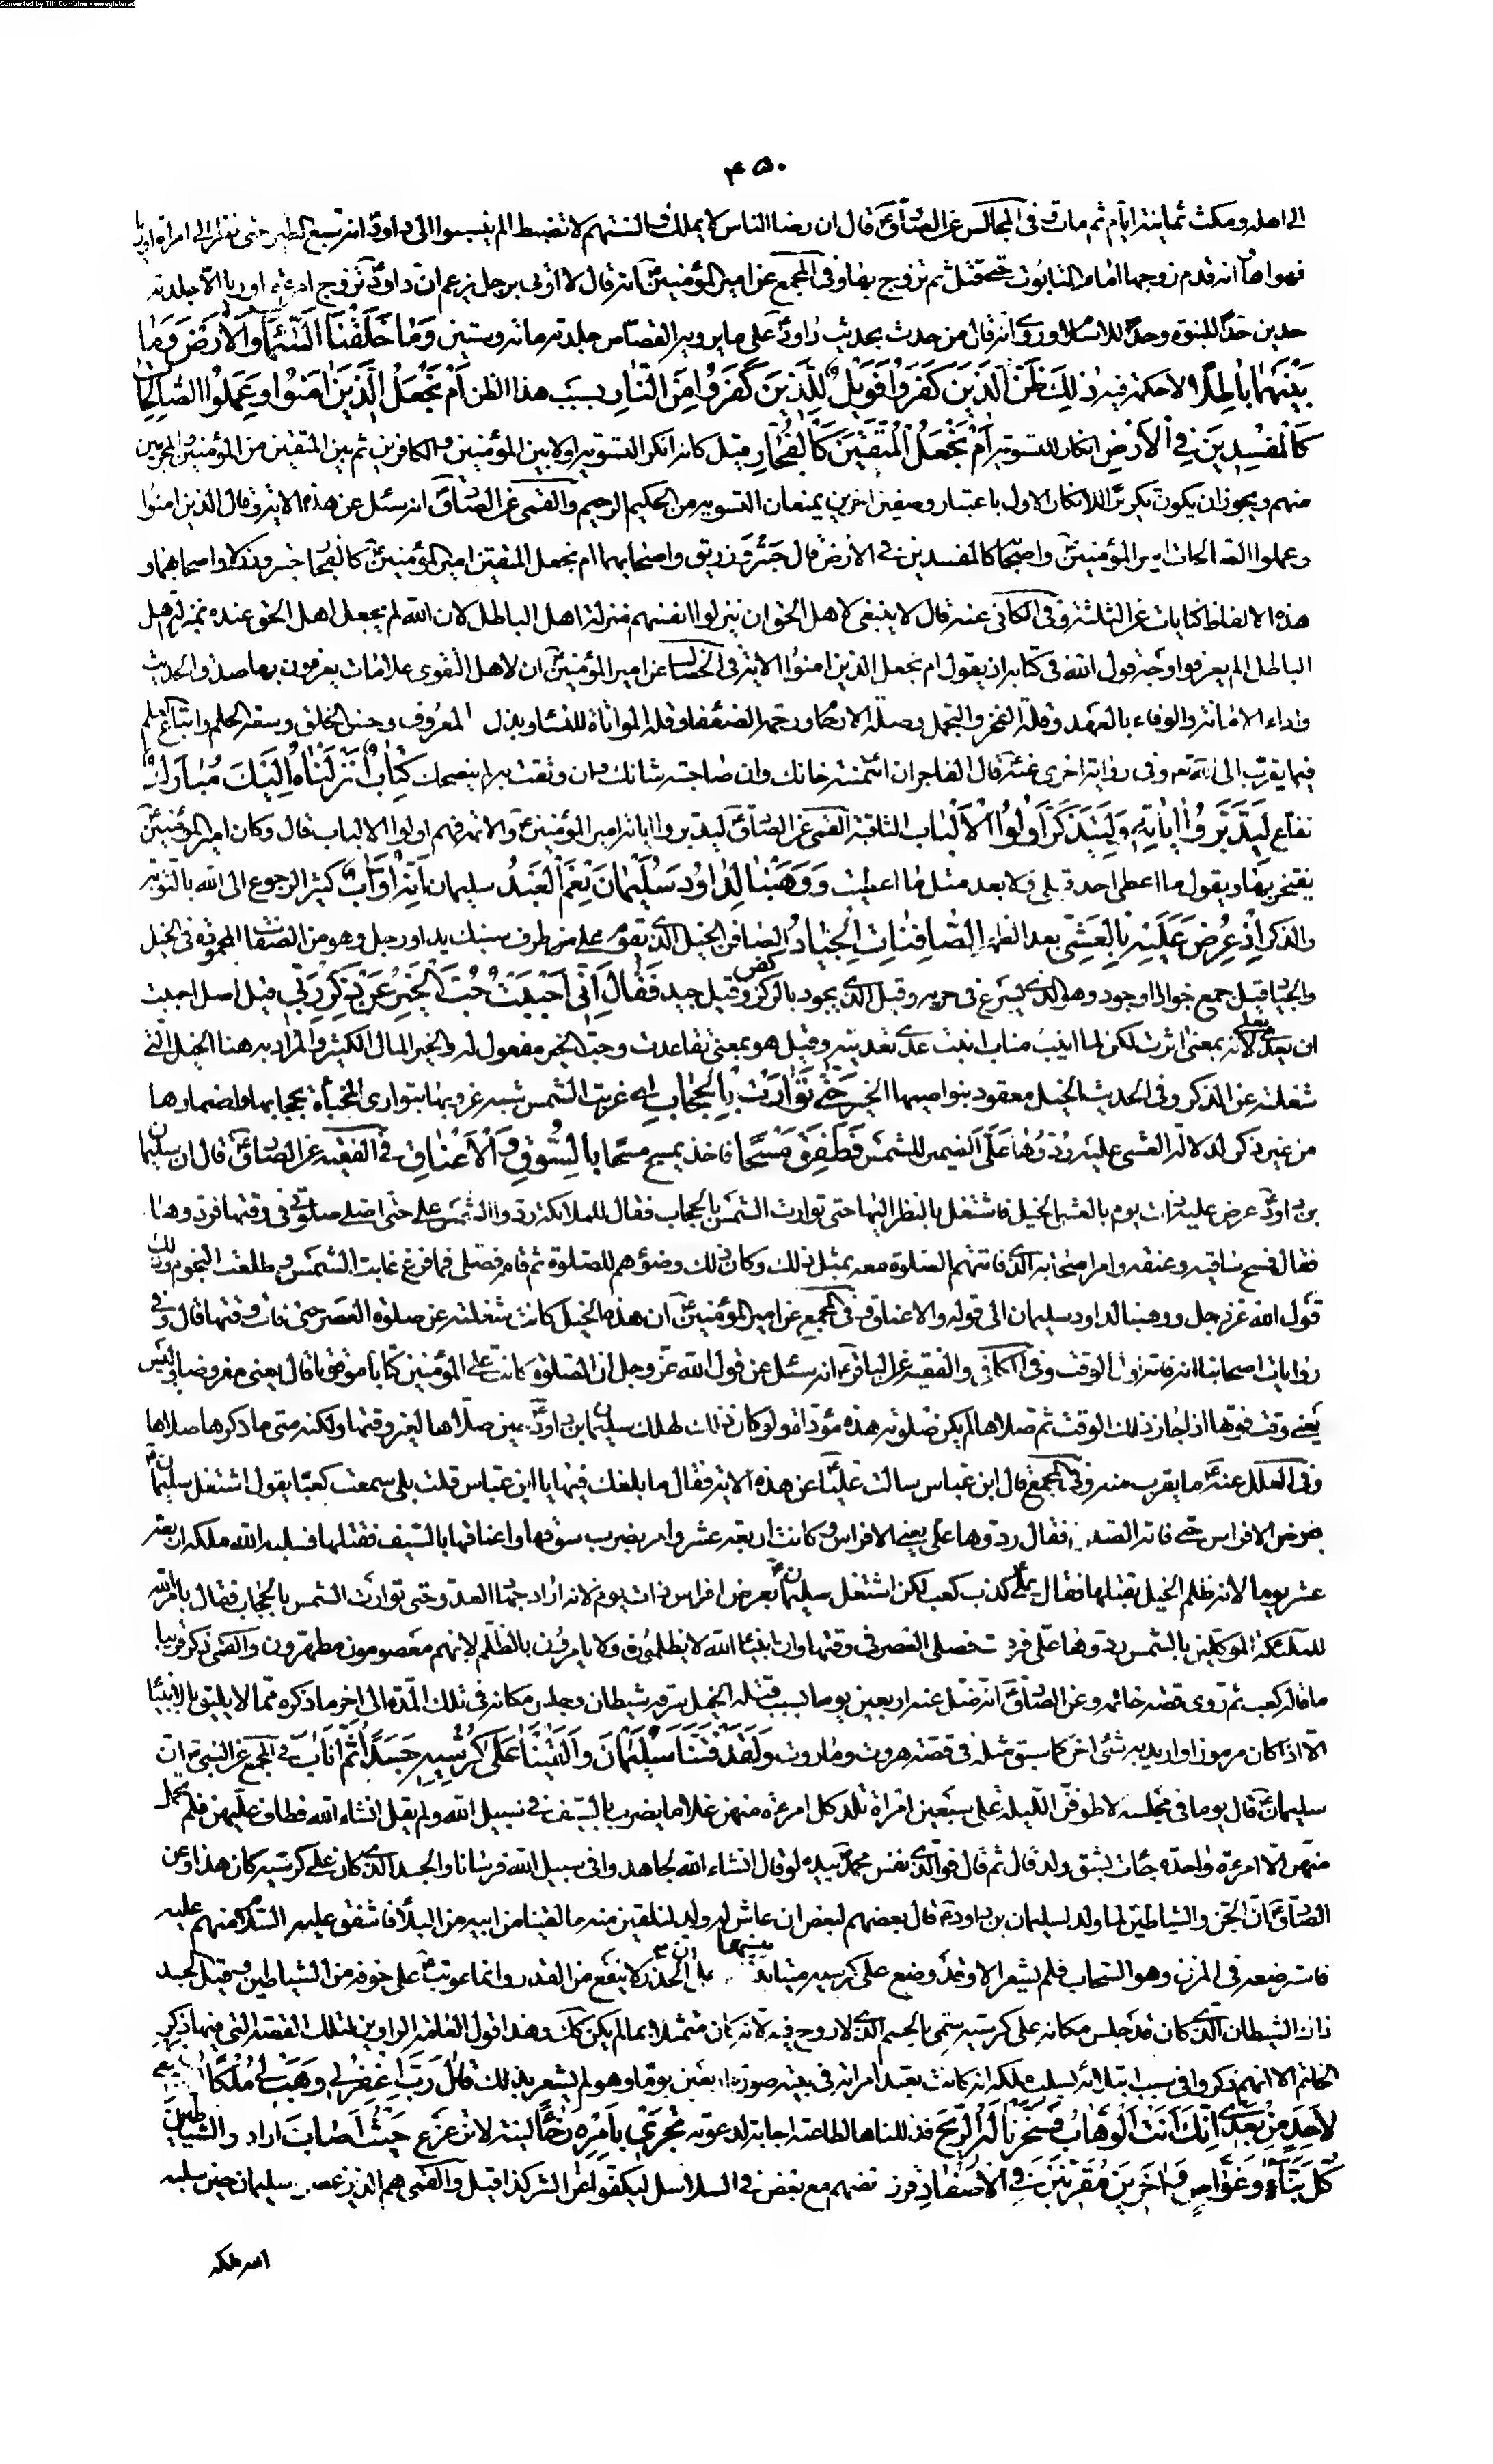 Converted by Tiff Combine - unregistered
۴۵۰
الى اهله ومكث ثمانية ايام ثم مات وفى المجالس عن الصادقؑ قال ان رضا الناس لا يملك والسنتهم لا تضبط الم ينسبوا الى داودؑ انه تبع الطير حتى نظر الى امراة اوريا
فهواها انه قدم زوجها امام التابوت حتى قتل ثم تزوج بها وفى المجمع عن امير المؤمنينؑ انه قال لا اوتى برجل يزعم ان داودؑ تزوج امرأة اوريا الا جلدته
حدين حدا للنبوة وحدا للاسلام وروى انه قال من حدث بحديث داودؑ على ما يرويه القصاص جلدته مائة وستين وَمَا خَلَقْنَا السَّمَاءَ وَالْأَرْضَ وَمَا
بَيْنَهُمَا بَاطِلًا لا حكمة فيه ذٰلِكَ ظَنُّ الَّذِينَ كَفَرُوا فَوَيْلٌ لِلَّذِينَ كَفَرُوا مِنَ النَّارِ بسبب هذا الظن أَمْ نَجْعَلُ الَّذِينَ اٰمَنُوا وَعَمِلُوا الصَّالِحَاتِ
كَالْمُفْسِدِينَ فِي الْأَرْضِ انكار للتسوية أَمْ نَجْعَلُ الْمُتَّقِينَ كَالْفُجَّارِ قيل كانه انكر التسوية اولا بين المؤمنين والكافرين ثم بين المتقين من المؤمنين والمجرمين
منهم ويجوز ان يكون تكريرا للانكار الاول باعتبار وصفين اخرين يمنعان التسوية من الحكيم الرحيم والقمى عن الصادقؑ انه سئل عن هذه الاية وقال الذين امنوا
وعملوا الصالحات امير المؤمنينؑ واصحابه كالمفسدين فى الارض قال حبتر وزريق واصحابهما ام نجعل المتقين امير المؤمنينؑ كالفجار حبتر وزلام واصحابهما و
هذه الالفاظ كنايات عن الثلثة وفى الكافى عنه قال لا ينبغى لاهل الحق ان ينزلوا انفسهم منزلة اهل الباطل لان الله لم يجعل اهل الحق عنده بمنزلة اهل
الباطل الم يعرفوا وجه قول الله فى كتابه اذ يقول ام نجعل الذين امنوا الاية وفى الخصال عن امير المؤمنينؑ ان لاهل التقوى علامات يعرفون بها صدق الحديث
واداء الامانة والوفاء بالعهد وقلة الفخر والتجمل وصلة الارحام ورحمة الضعفاء وقلة المواتاة للنساء وبذل المعروف وحسن الخلق وسعة الحلم واتباع العلم
فيما يقرب الى الله وفى رواية اخرى عنهؑ قال الفاجر ان ائتمنته خانك وان صاحبته شانك وان وثقت به لم ينصحك كِتَابٌ أَنْزَلْنَاهُ إِلَيْكَ مُبَارَكٌ
نفاع لِيَدَّبَّرُوا اٰيَاتِهِ وَلِيَتَذَكَّرَ أُولُوا الْأَلْبَابِ الثاقبة القمى عن الصادقؑ ليدبروا اياته امير المؤمنينؑ والائمة فهم اولوا الالباب قال وكان امير المؤمنينؑ
يفتخر بها ويقول ما اعطى احد قبلى ولا بعدى مثل ما اعطيت وَوَهَبْنَا لِدَاوُدَ سُلَيْمَانَ نِعْمَ الْعَبْدُ سليمان إِنَّهُ أَوَّابٌ كثير الرجوع الى الله بالتوبة
والذكر إِذْ عُرِضَ عَلَيْهِ بِالْعَشِيِّ بعد الظهر الصَّافِنَاتُ الْجِيَادُ الصافن الخيل الذى يقوم على طرف سنبك يد او رجل وهو من الصفات المحمودة فى الخيل
والجياد قيل جمع جواد او جود وهو الذى يسرع فى جريه وقيل الذى يجود بالركض وقيل جيد فَقَالَ إِنِّي أَحْبَبْتُ حُبَّ الْخَيْرِ عَنْ ذِكْرِ رَبِّي قيل اصل احببت
ان يعدى بعلى لانه بمعنى اثرت لكن لما انيب مناب انبت عدى تعديته وقيل هو بمعنى تقاعدت وحب الخير مفعول له والخير المال الكثير والمراد به هنا الخيل التى
شغلته عن الذكر وفى الحديث الخيل معقود بنواصيها الخير حَتَّى تَوَارَتْ بِالْحِجَابِ اى غربت الشمس شبه غروبها بتوارى المخبأة بحجابها واضمارها
من غير ذكر لدلالة العشى عليه رُدُّوهَا عَلَيَّ الضمير للشمس فَطَفِقَ مَسْحًا فاخذ يمسح مسحا بِالسُّوقِ وَالْأَعْنَاقِ فى الفقيه عن الصادقؑ قال ان سليمان
بن داودؑ عرض عليه ذات يوم بالعشى الخيل فاشتغل بالنظر اليها حتى توارت الشمس بالحجاب فقال للملائكة ردوا الشمس على حتى اصلى صلوتى فى وقتها فردوها
فقال فمسح ساقيه وعنقه وامر اصحابه الذى فاتتهم الصلوة معه بمثل ذلك وكان ذلك وضوءهم للصلوة ثم قام فصلى فلما فرغ غابت الشمس وطلعت النجوم وذلك
قول الله عز وجل ووهبنا لداود سليمان الى قوله والاعناق وفى المجمع عن امير المؤمنينؑ ان هذه الخيل كانت شغلته عن صلوة العصر حتى فات وقتها قال وفى
روايات اصحابنا انه فاته اول الوقت وفى الكافى والفقيه عن الباقرؑ انه سئل عن قول الله عز وجل ان الصلوة كانت على المؤمنين كتابا موقوتا قال يعنى مفروضا وليس
يعنى وقت فوتها اذا جاز ذلك الوقت ثم صلاها لم يكن صلوته هذه مؤداة ولو كان ذلك لهلك سليمان بن داودؑ حين صلاها لغير وقتها ولكنه متى ما ذكرها صلاها
وفى العلل عنهؑ ما يقرب منه وفى المجمع قال ابن عباس سالت علياؑ عن هذه الاية فقال ما بلغك فيها يا ابن عباس قلت بلى سمعت كعبا يقول اشتغل سليمانؑ
بعرض الافراس حتى فاتته الصلوة فقال ردوها على يعنى الافراس وكانت اربعة عشر وامر بضرب سوقها واعناقها بالسيف فقتلها فسلبه الله ملكه اربعة
عشر يوما لانه ظلم الخيل بقتلها فقال علىؑ كذب كعب لكن اشتغل سليمانؑ بعرض افراس ذات يوم لانه اراد جهاد العدو حتى توارت الشمس بالحجاب فقال بامر الله
للملائكة الموكلين بالشمس ردوها على فردت فصلى العصر فى وقتها وان انبياء الله لا يظلمون ولا يامرون بالظلم لانهم معصومون مطهرون والقمى ذكر قريبا
ما قاله كعب ثم روى قصة خاتمه وعن الصادقؑ انه ضل عنه اربعين يوما بسبب قتله الخيل سرقه شيطان وجلس مكانه فى تلك المدة الى اخر ما ذكره مما لا يليق بالانبياء
الا اذا كان مرموزا واريد به شئ اخر كما سبق مثله فى قصة هروت وماروت وَلَقَدْ فَتَنَّا سُلَيْمَانَ وَأَلْقَيْنَا عَلَى كُرْسِيِّهِ جَسَدًا ثُمَّ أَنَابَ فى المجمع عن النبىؐ ان
سليمانؑ قال يوما فى مجلسه لاطوفن الليلة على سبعين امراة تلد كل امرءة منهن غلاما يضرب بالسيف فى سبيل الله ولم يقل انشاء الله فطاف عليهن فلم تحمل
منهن الا امرءة واحدة جاءت بشق ولد قال ثم قال فوالذى نفس محمد بيده لو قال انشاء الله لجاهدوا فى سبيل الله فرسانا والجسد الذى كان على كرسيه كان هذا وعن
الصادقؑ ان الجن والشياطين لما ولد لسليمان بن داودؑ قال بعضهم لبعض ان عاش له ولد لنلقين منه ما لقينا من ابيه من البلاء فاشفق عليه السلام منهم عليه
فاسترضعه فى المزن وهو السحاب فلم يشعر الا وقد وضع على كرسيه ميتا تنبيها على ان الحذر لا ينفع من القدر وانما عوتبؑ على خوفه من الشياطين وقيل الجسد
ذات الشيطان الذى كان قد جلس مكانه على كرسيه سمى بالجسم الذى لا روح فيه لانه كان متمثلا بما لم يكن كك وهذا قول العامة الراوين لتلك القصة التى فيها ذكر
الخاتم الا انهم ذكروا فى سبب ابتلائه بسلب ملكه انه كانت تعبد امراته فى بيته صورة اربعين يوما وهو لم يشعر بذلك قَالَ رَبِّ اغْفِرْ لِي وَهَبْ لِي مُلْكًا لَا يَنْبَغِي
لِأَحَدٍ مِنْ بَعْدِي إِنَّكَ أَنْتَ الْوَهَّابُ فَسَخَّرْنَا لَهُ الرِّيحَ فذللناها لطاعته اجابة لدعوته تَجْرِي بِأَمْرِهِ رُخَاءً لينة لا تزعزع حَيْثُ أَصَابَ اراد وَالشَّيَاطِينَ
كُلَّ بَنَّاءٍ وَغَوَّاصٍ وَاٰخَرِينَ مُقَرَّنِينَ فِي الْأَصْفَادِ قرن بعضهم مع بعض فى السلاسل ليكفوا عن الشر كذا قيل والقمى هم الذين عصوا سليمان حين سلبه
الله ملكه